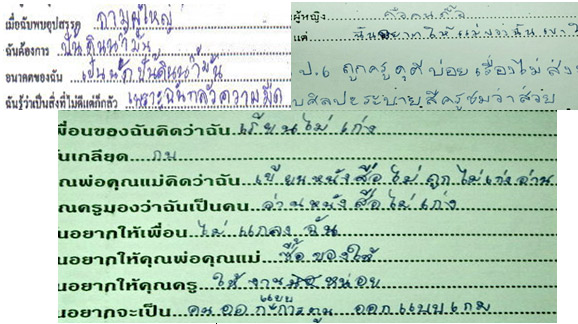 เมื่อฉันพบอุปสรรค ถามผู้ใหญ่
ฉันต้องการ ปั้นดินน้ำมัน
อนาคตของฉัน เป็นนักปั้นดินน้ำมัน
ฉันรู้ว่าเป็นสิ่งที่ไม่ดีแต่ก็กลัว เพราะฉันกลัวความมืด
ผู้หญิง
แต่ ฉันอยากให้แม่ของฉัน
ป.6 ถูกครูดุตีบ่อยเรื่องไม่ส่ง
บศิลปะระบายสีครูชมว่าสวย
พื่อนของฉันคิดว่าฉัน เรียนไม่เก่ง
ันเกลียด กบ
ุณพ่อคุณแม่คิดว่าฉัน เขียนหนังสือไม่ถูกไม่เก่งอ่าน
ุณครูมองว่าฉันเป็นคน อ่านหนังสือไม่เก่ง
ันอยากให้เพื่อน ไม่แกลงฉัน
ันอยากให้คุณพ่อคุณแม่ ซื้อของให้
ันอยากให้คุณครู ให้งานนิดหน่อย
ันอยากจะเป็น คนออกแบบการ์ตูน ออกแบบเกม